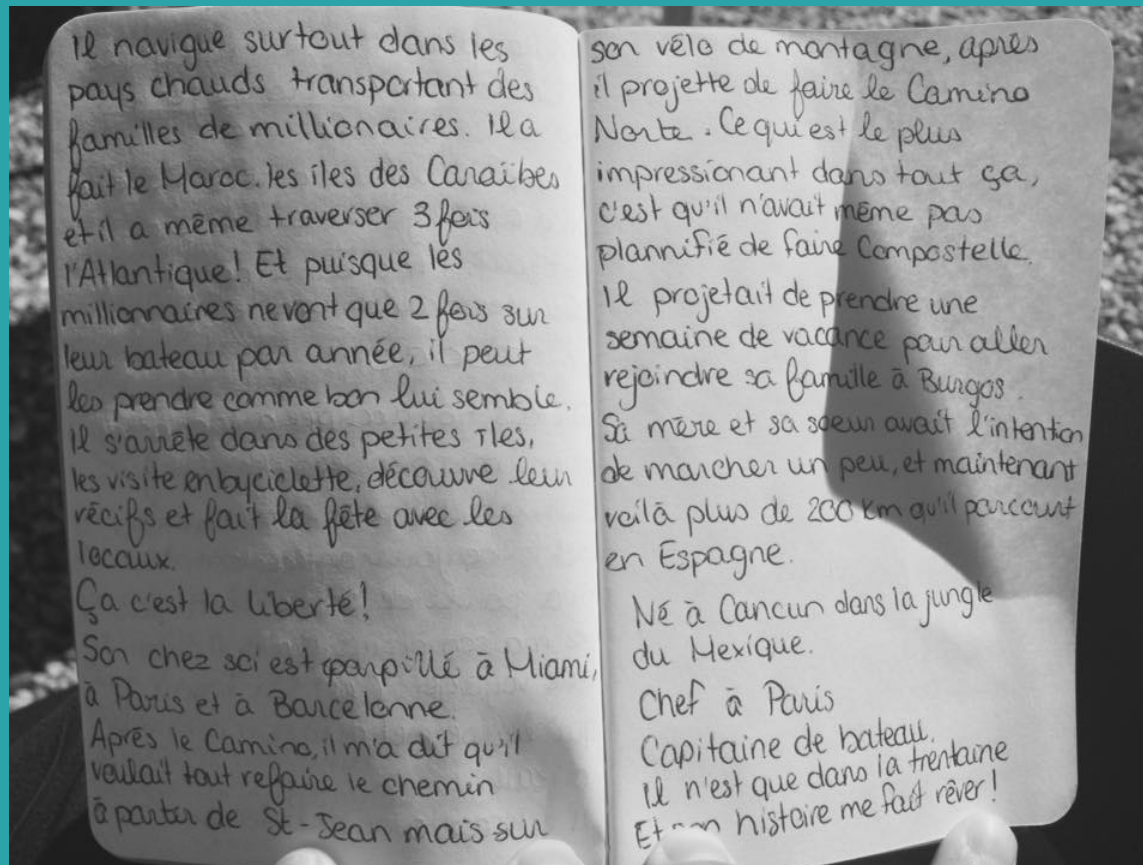 Il navigue surtout dans les
pays chauds transportant des
familles de millionaires. Il a
fait le Maroc. les îles des Caraïbes
et il a même traverser 3 fois
l'Atlantique! Et puisque les
millionnaires ne vont que 2 fois sur
leur bateau par année, il peut
les prendre comme bon lui semble.
Il s'arrête dans des petites îles,
les visite en byciclette, découvre leur
récifs et fait la fête avec les
locaux.
Ça c'est la liberté!
Son chez soi est éparpillé à Miami,
à Paris et à Barcelonne.
Après le Camino, il m'a dit qu'il
voulait tout refaire le chemin
à partir de St-Jean mais sur
son vélo de montagne, après
il projette de faire le Camino
Norte. Ce qui est le plus
impressionant dans tout ça,
c'est qu'il n'avait même pas
plannifié de faire Compostelle.
Il projetait de prendre une
semaine de vacance pour aller
rejoindre sa famille à Burgos.
Sa mère et sa soeur avait l'intention
de marcher un peu, et maintenant
voilà plus de 200 km qu'il parcourt
en Espagne.
Né à Cancun dans la jungle
du Mexique.
Chef à Paris
Capitaine de bateau.
Il n'est que dans la trentaine
Et son histoire me fait rêver!